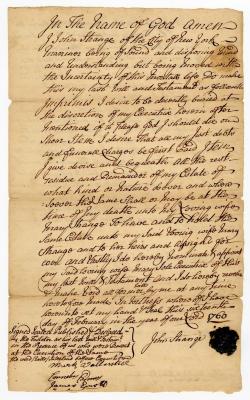 In the Name of God Amen
I John Strange of the City of New York
being of sound and disposing Mind
and Understanding but being
the Incertainty of this Do make
this my last Will and Testament as followeth
Imprimis I desire to be decently buried at
the discretion of my Executrix herein after
mentioned
Shore Item I desire that all my Just debts
and funeral charges be first paid Item I
give devise and bequeath all the rest
residue and Remainder of my Estate of
what kind or nature soever and where
soever the same shall or may be at the
time of my death unto my Loving wife
Mary Strange To have and to hold the
same Estate unto my said loving wife Mary
Strange and to her heirs and assigns for
ever and lastly I do hereby nominate & appoint
my said loving wife Mary Sole Executrix of this
my last Will & Testament and do hereby revoke
and make void all former by me at any time
heretofore made In Witness whereof I have
hereunto set my hand & Seal this
day of February in the year of our Lord 1760
Signed Sealed Published & Declared
by the Testator as his last Will & Testament
in the presence of us who were present
at the Execution of the same
John Strange
Mark Valentine
James